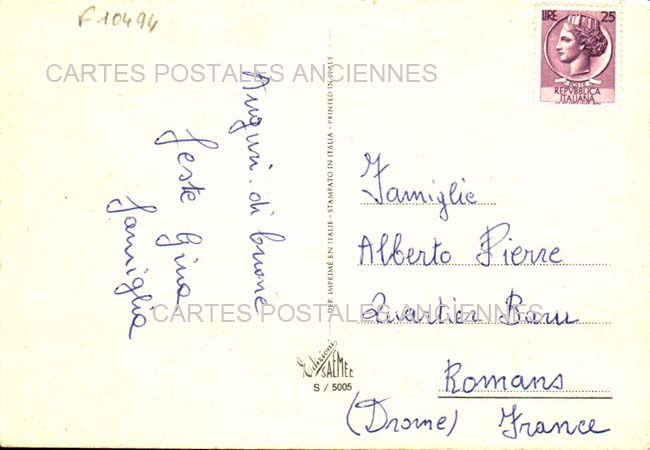 F 10494
LIRE 25
POSTE
REPVBBLICA
ITALIANA
CARTES POSTALES ANCIENNES
Auguri di buone
feste Gina
famiglia
DEP. IMPRIMÉ EN ITALIE - STAMPATO IN ITALIA - PRINTED IN ITALY
Famiglie
Alberto Pierre
Quartier Baru
Romans
(Drome) France
CARTES POSTALES ANCIENNES
Edizioni
SAEMEC
S / 5005